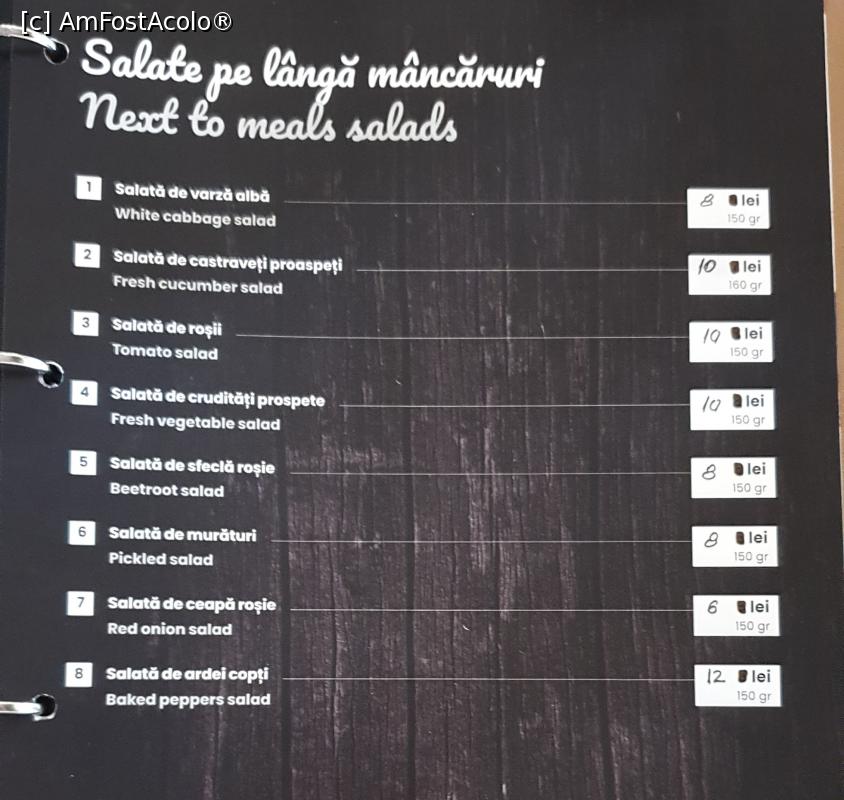 [c] AmFostAcolo®
Salate pe lângă mâncăruri
Next to meals salads
1 Salată de varză albă 8 lei
White cabbage salad 150 gr
2 Salată de castraveți proaspeți 10 lei
Fresh cucumber salad 160 gr
3 Salată de roșii 10 lei
Tomato salad 150 gr
4 Salată de crudități prospete 10 lei
Fresh vegetable salad 150 gr
5 Salată de sfeclă roșie 8 lei
Beetroot salad 150 gr
6 Salată de murături 8 lei
Pickled salad 150 gr
7 Salată de ceapă roșie 6 lei
Red onion salad 150 gr
8 Salată de ardei copți 12 lei
Baked peppers salad 150 gr